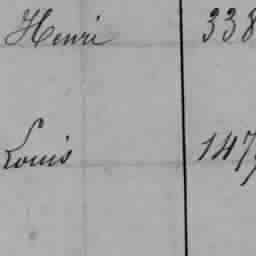 Henri 338
Louis 147